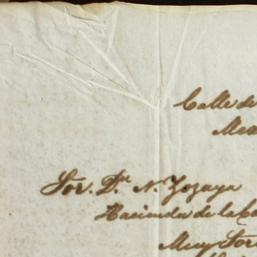 Calle de
Mex
Sor. Dn. N. Zozaya
Hacienda de la Ca
Muy Sor